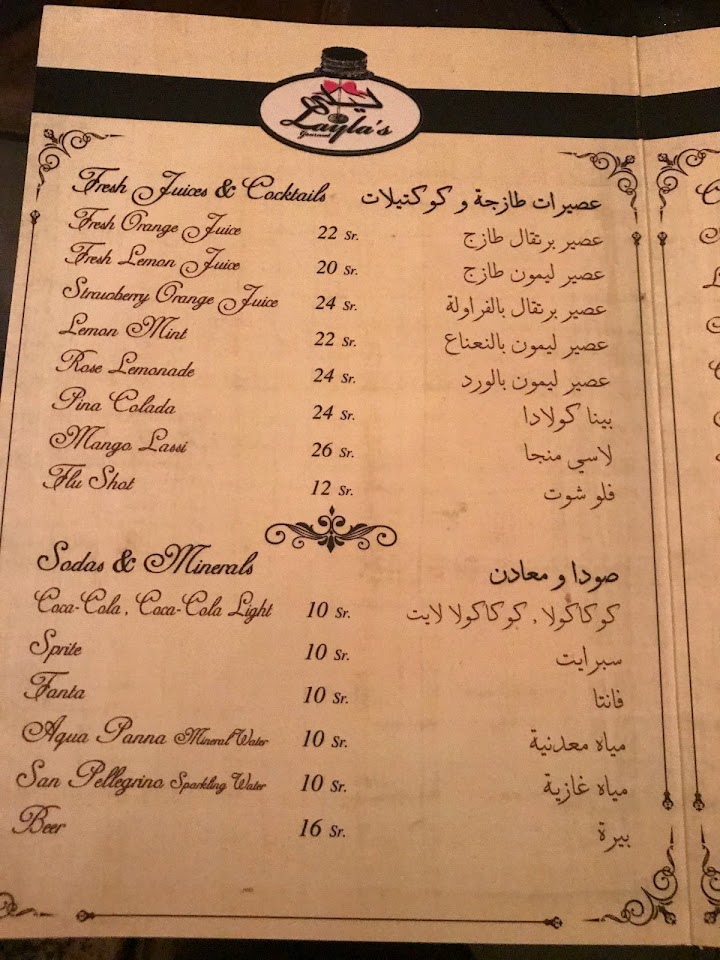 ليلى
Layla's
Gourmet
Fresh Juices & Cocktails عصيرات طازجة و كوكتيلات
Fresh Orange Juice 22 Sr. عصير برتقال طازج
Fresh Lemon Juice 20 Sr. عصير ليمون طازج
Strawberry Orange Juice 24 Sr. عصير برتقال بالفراولة
Lemon Mint 22 Sr. عصير ليمون بالنعناع
Rose Lemonade 24 Sr. عصير ليمون بالورد
Pina Colada 24 Sr. بينا كولادا
Mango Lassi 26 Sr. لاسي منجا
Flu Shot 12 Sr. فلو شوت
Sodas & Minerals صودا و معادن
Coca-Cola , Coca-Cola Light 10 Sr. كوكاكولا , كوكاكولا لايت
Sprite 10 Sr. سبرايت
Fanta 10 Sr. فانتا
Aqua Panna Mineral Water 10 Sr. مياه معدنية
San Pellegrino Sparkling Water 10 Sr. مياه غازية
Beer 16 Sr. بيرة